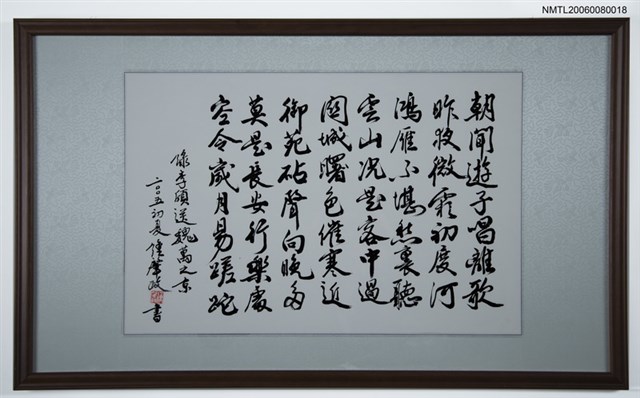 NMTL20060080018
朝聞遊子唱離歌
昨夜微霜初度河
鴻雁不堪愁裏聽
雲山況是客中過
關城曙色催寒近
御苑砧聲向晚多
莫是長安行樂處
空令歲月易蹉跎
錄李頎送魏萬之京
二〇〇五初夏 書